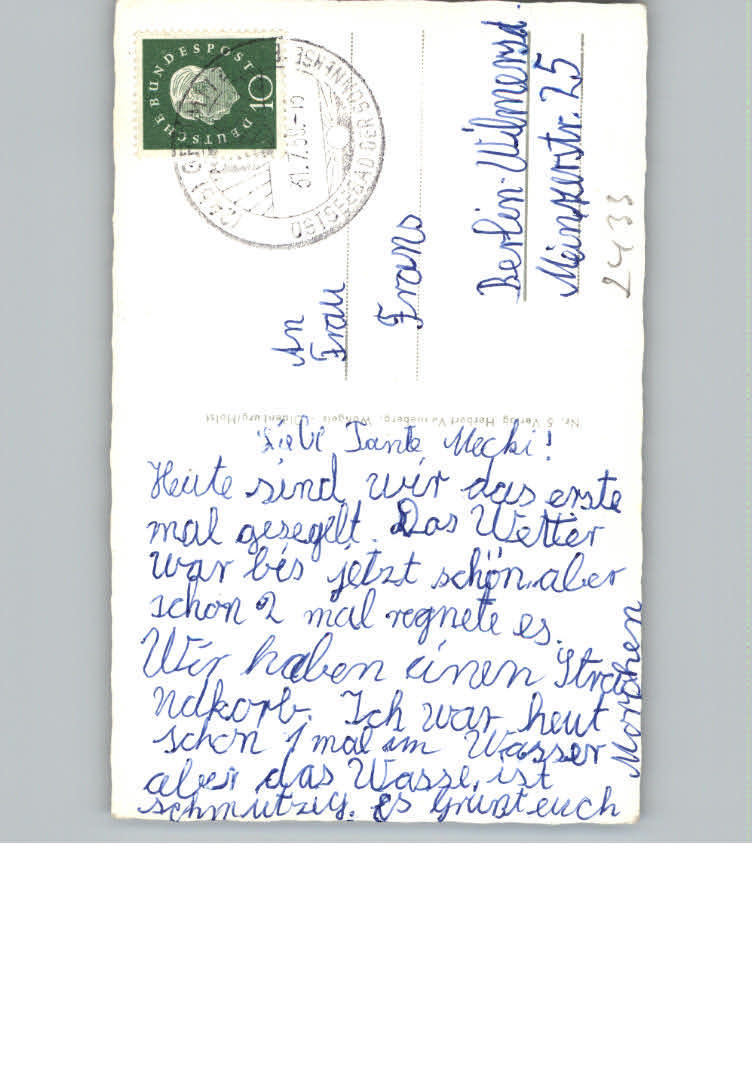 Liebe Tante Mecki!
Heute sind wir das erste
mal gesegelt. Das Wetter
war bis jetzt schön. aber
schon 2 mal regnete es.
Wir haben einen Stra
ndkorb. Ich war heut
schon 1 mal im Wasser
aber das Wasser ist
schmutzig. es grüßt euch
An
Frau
Frans
Berlin-Wilmersd.
Mainzerstr. 25
2433
DEUTSCHE BUNDESPOST
10
OSTSEEBAD DER SONNENSE
31.7.
Nr. 5 Verlag Herbert
Oldenburg/Holst